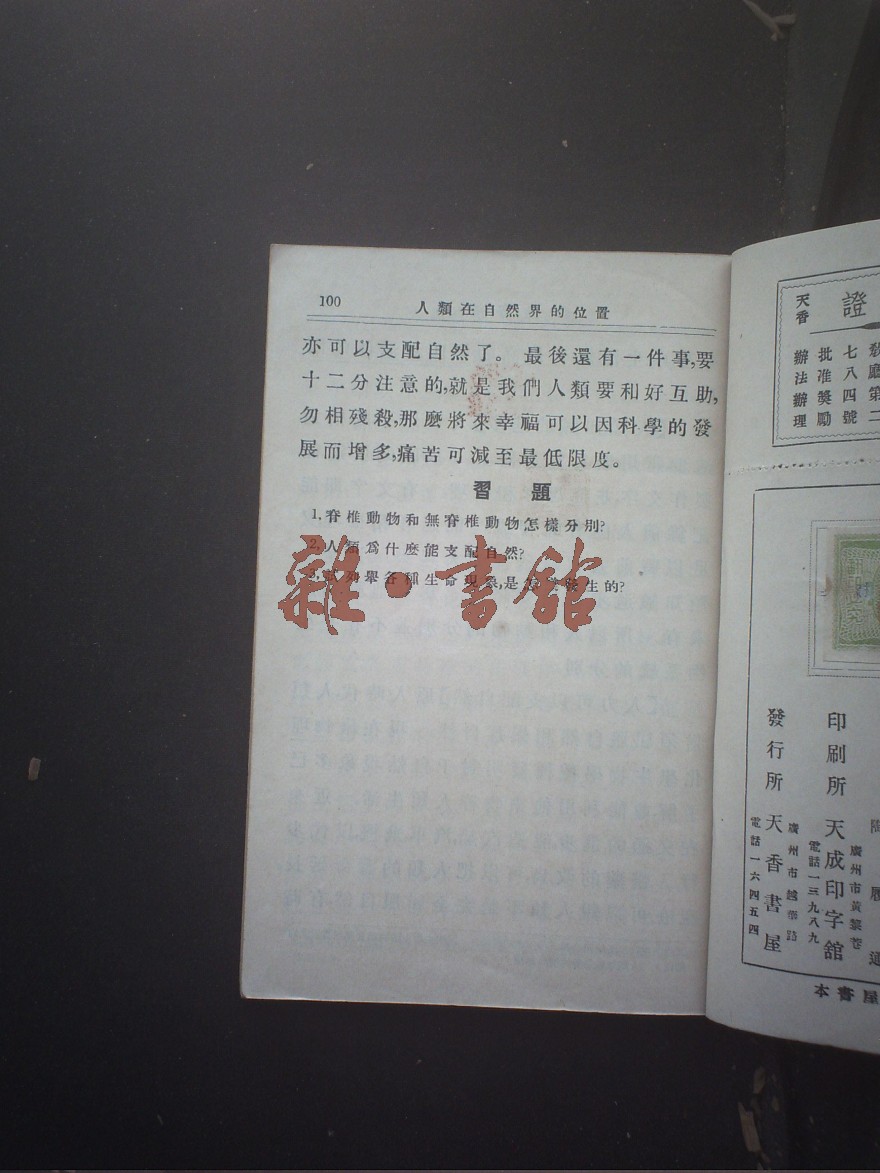 100
人類在自然界的位置
亦可以支配自然了。最後還有一件事,要
十二分注意的,就是我們人類要和好互助,
勿相殘殺,那麽將來幸福可以因科學的發
展而增多,痛苦可減至最低限度。
習題
1,脊椎動物和無脊椎動物怎樣分別?
2,人類爲什麽能支配自然?
舉各種生命現象,是發生的?
雜·書館
證
天香
廳第二
七八四號
批准獎勵
辦法辦理
印刷所 天成印字館
廣州市黃黎巷
電話一三九八九
發行所 天香書屋
廣州市越華路
電話一六四五四
本書屋